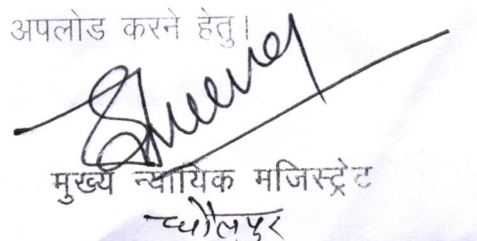 अपलोड करने हेतु।
मुख्य न्यायिक मजिस्ट्रेट
धौलपुर